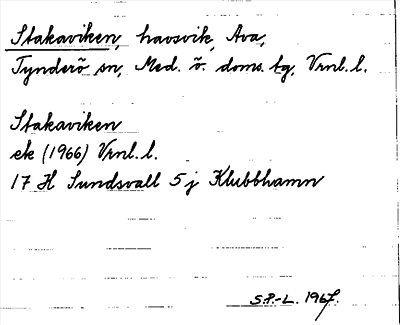 Stakaviken, havsvik, Ava,
Tynderö sn, Med. ö. doms. tg, Vrnl. l.
Stakaviken
ek (1966) Vrnl. l.
17 H Sundsvall 5 j Klubbhamn
S.P.-L. 1967.